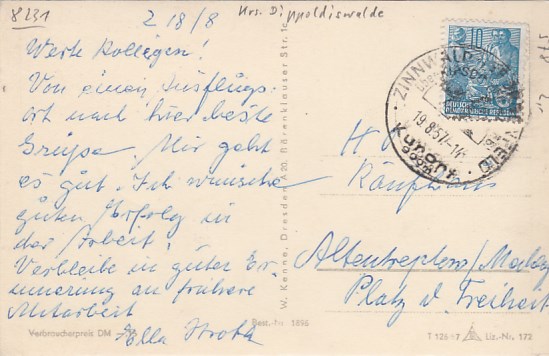 8231
Z 18/8
Krs. Dippoldiswalde
Werte Kollegen!
Von einem Ausflugs-
ort nach hier beste
Grüße. Mir geht
es gut. Ich wünsche
guten Erfolg in
der Arbeit!
Verbleibe in guter Er-
innerung an frühere
Mitarbeit
Ella
Verbraucherpreis DM
Best.-Nr. 1896
W. Kenne, Dresden A20, Bärenklauser Str. 1c
10
DEUTSCHE
DEMOKRATISCHE REPUBLIK
ZINNWALD
19.8.57.-14
Kurort
H
Kaufhaus
Altentreptow/Meckbg
Platz d. Freiheit
Liz.-Nr. 173